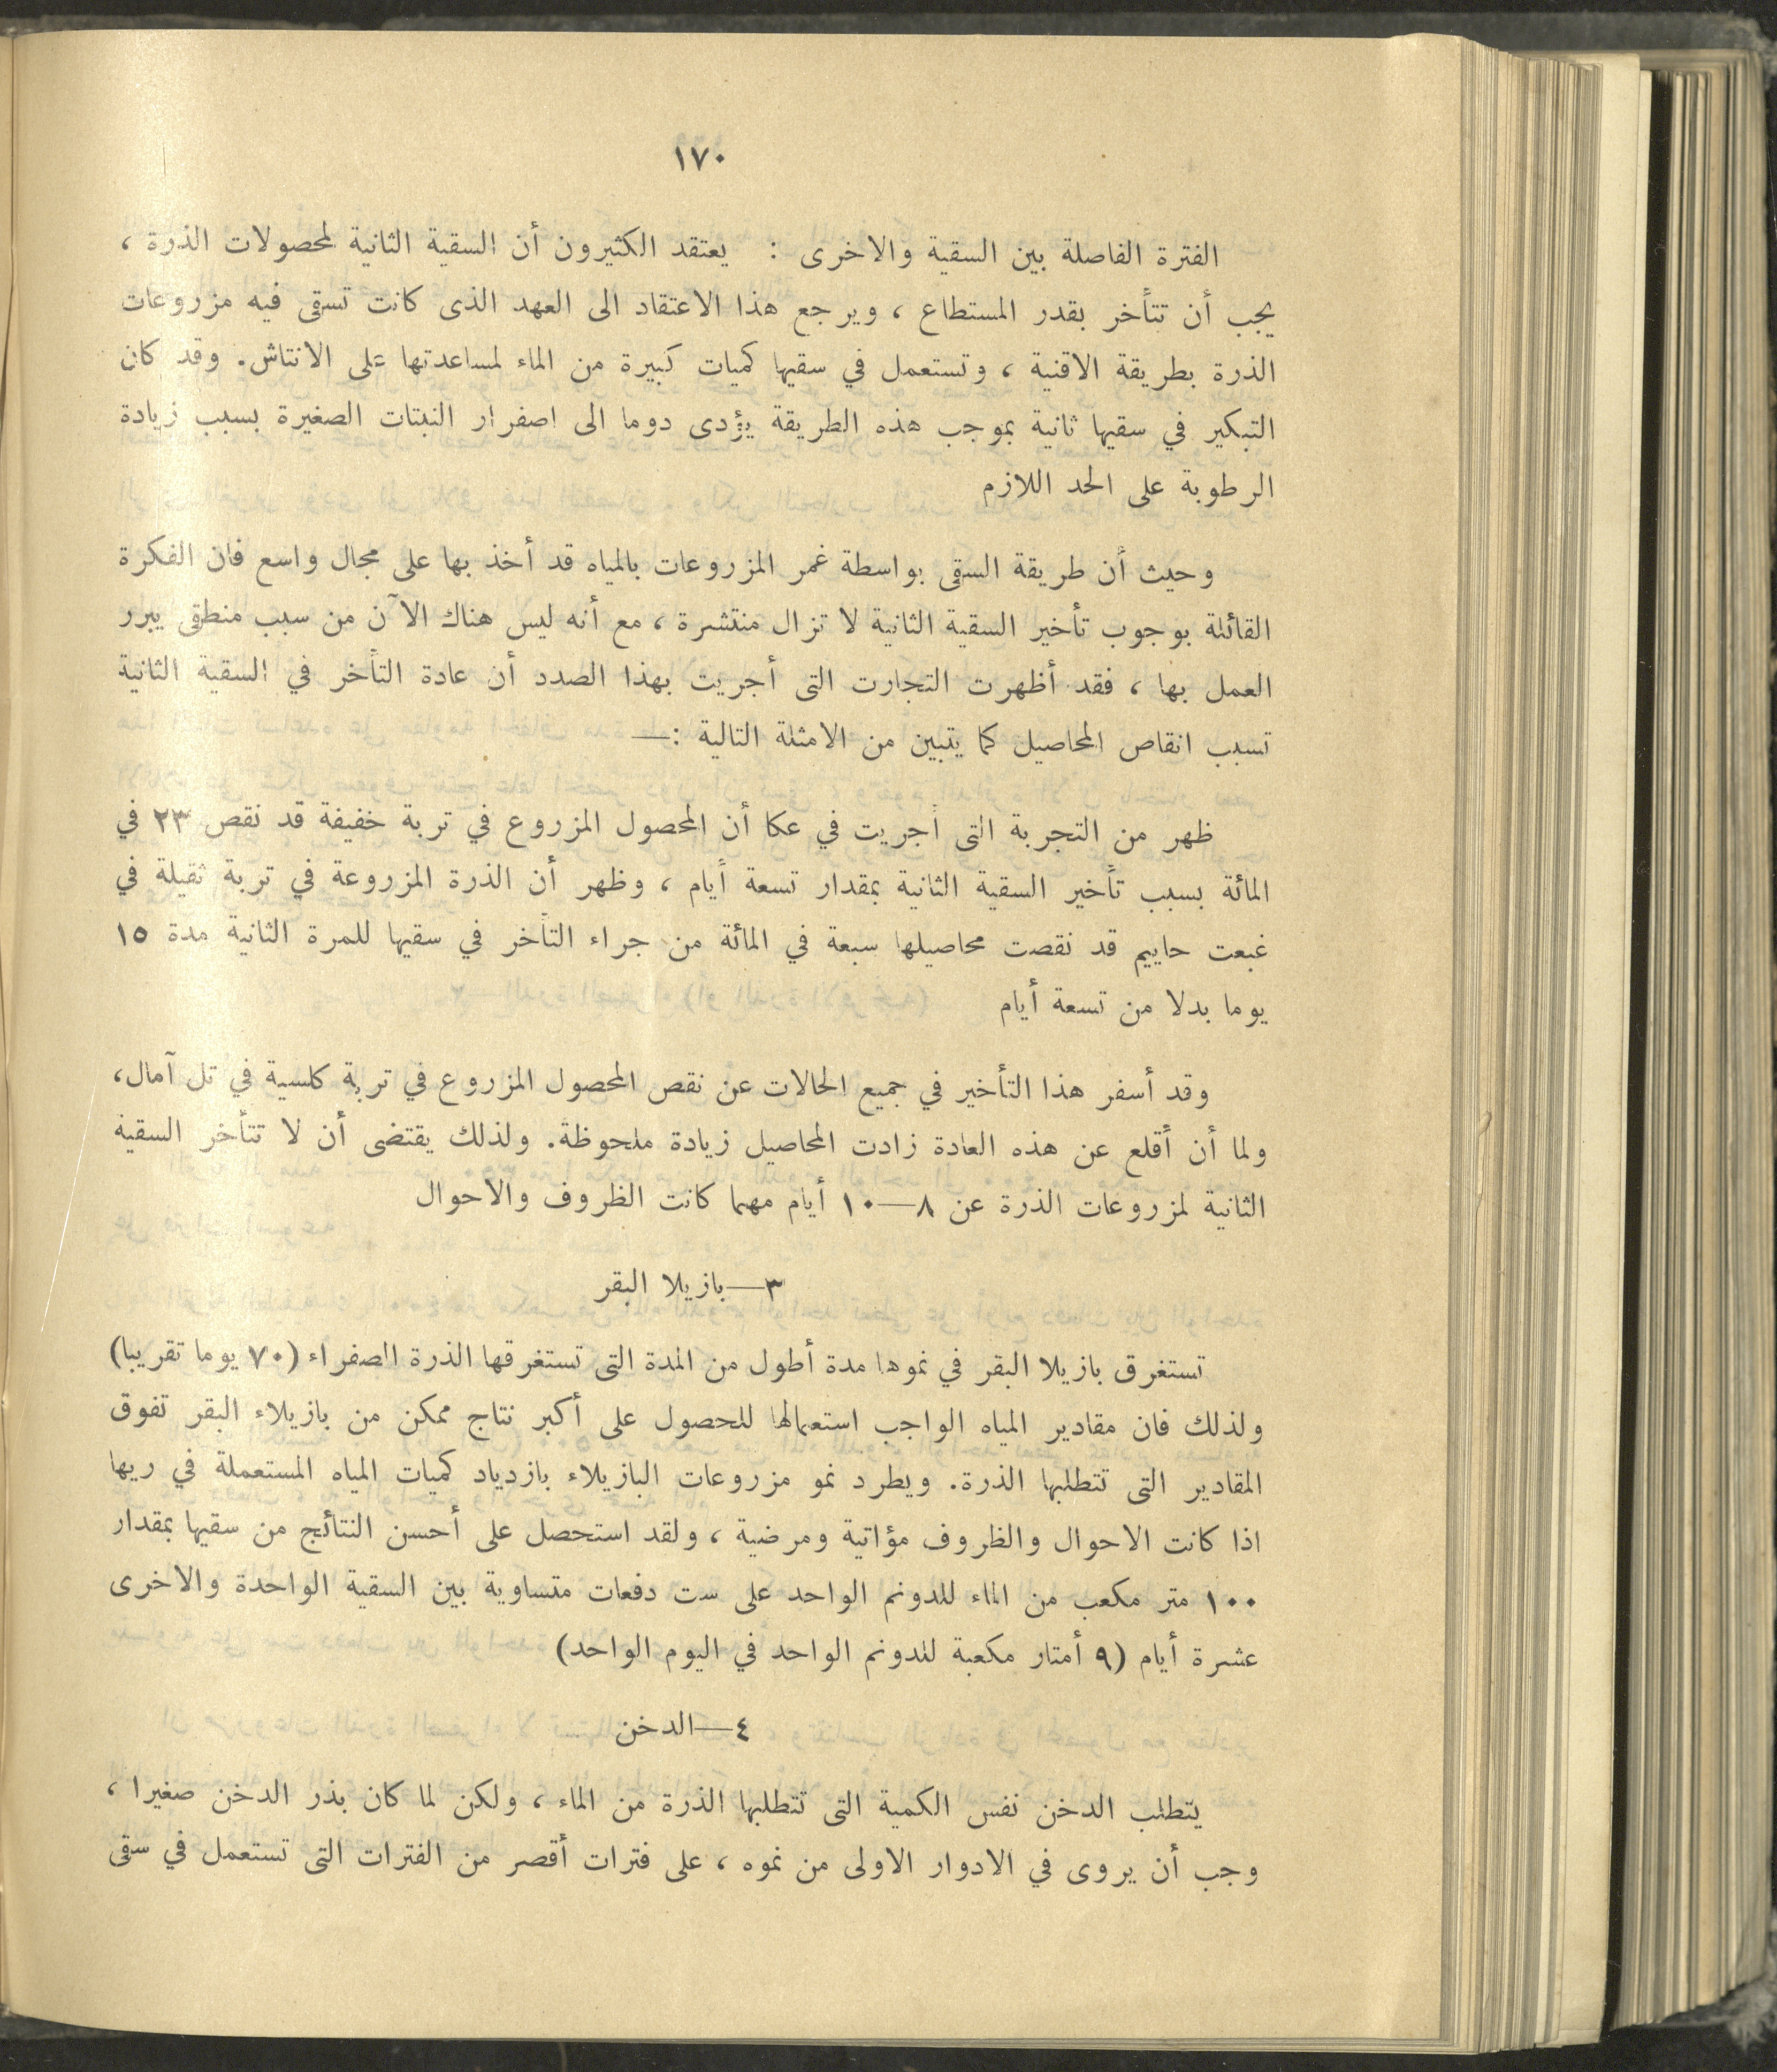 ١٧٠
الفترة الفاصلة بين السقية والاخرى : يعتقد الكثيرون أن السقية الثانية لمحصولات الذرة ،
يجب أن تتأخر بقدر المستطاع ، ويرجع هذا الاعتقاد الى العهد الذى كانت تسقى فيه مزروعات
الذرة بطريقة الاقنية ، وتستعمل في سقيها كميات كبيرة من الماء لمساعدتها على الانتاش. وقد كان
التبكير في سقيها ثانية بموجب هذه الطريقة يؤدى دوما الى اصفرار النبتات الصغيرة بسبب زيادة
الرطوبة على الحد اللازم
وحيث أن طريقة السقى بواسطة غمر المزروعات بالمياه قد أخذ بها على مجال واسع فان الفكرة
القائلة بوجوب تأخير السقية الثانية لا تزال منتشرة ، مع أنه ليس هناك الآن من سبب منطقى يبرر
العمل بها ، فقد أظهرت التجارت التى أجريت بهذا الصدد أن عادة التأخر في السقية الثانية
تسبب انقاص المحاصيل كما يتبين من الامثلة التالية :—
ظهر من التجربة التى أجريت في عكا أن المحصول المزروع في تربة خفيفة قد نقص ٢٣ في
المائة بسبب تأخير السقية الثانية بمقدار تسعة أيام ، وظهر أن الذرة المزروعة في تربة ثقيلة في
غبعت حاييم قد نقصت محاصيلها سبعة في المائة من جراء التأخر في سقيها للمرة الثانية مدة ١٥
يوما بدلا من تسعة أيام
وقد أسفر هذا التأخير في جميع الحالات عن نقص المحصول المزروع في تربة كلسية في تل آمال،
ولما أن أقلع عن هذه العادة زادت المحاصيل زيادة ملحوظة. ولذلك يقتضى أن لا تتأخر السقية
الثانية لمزروعات الذرة عن ٨—١٠ أيام مهما كانت الظروف والاحوال
٣—بازيلا البقر
تستغرق بازيلا البقر في نموها مدة أطول من المدة التى تستغرقها الذرة الصفراء (٧٠ يوما تقريبا)
ولذلك فان مقادير المياه الواجب استعمالها للحصول على أكبر نتاج ممكن من بازيلاء البقر تفوق
المقادير التى تتطلبها الذرة. ويطرد نمو مزروعات البازيلاء بازدياد كميات المياه المستعملة في ريها
اذا كانت الاحوال والظروف مؤاتية ومرضية ، ولقد استحصل على أحسن النتائج من سقيها بمقدار
١٠٠ متر مكعب من الماء للدونم الواحد على ست دفعات متساوية بين السقية الواحدة والاخرى
عشرة أيام (٩ أمتار مكعبة للدونم الواحد في اليوم الواحد)
٤—الدخن
يتطلب الدخن نفس الكمية التى تتطلبها الذرة من الماء ، ولكن لما كان بذر الدخن صغيرا ،
وجب أن يروى في الادوار الاولى من نموه ، على فترات أقصر من الفترات التى تستعمل في سقى